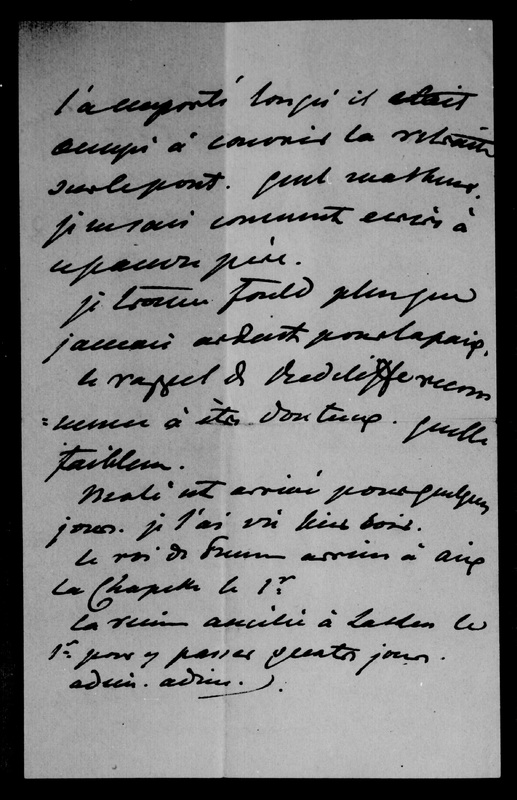 l'a emporté lorsqu'il était
occupé à couvrir la retraite
sur le pont. quel malheur.
je ne sais comment écrire à
ce pauvre père.
je trouve Fould plus que
jamais ardent pour la paix.
le rappel de Redcliffe recom
=mence à être douteux. quelle
faiblesse.
est arrivé pour quelques
jours. je l'ai vu hier soir.
le roi de Prusse arrive à aix
la Chapelle le 1er
la reine amélie à Laeken le
1er pour y passer quatre jours.
adieu. adieu.